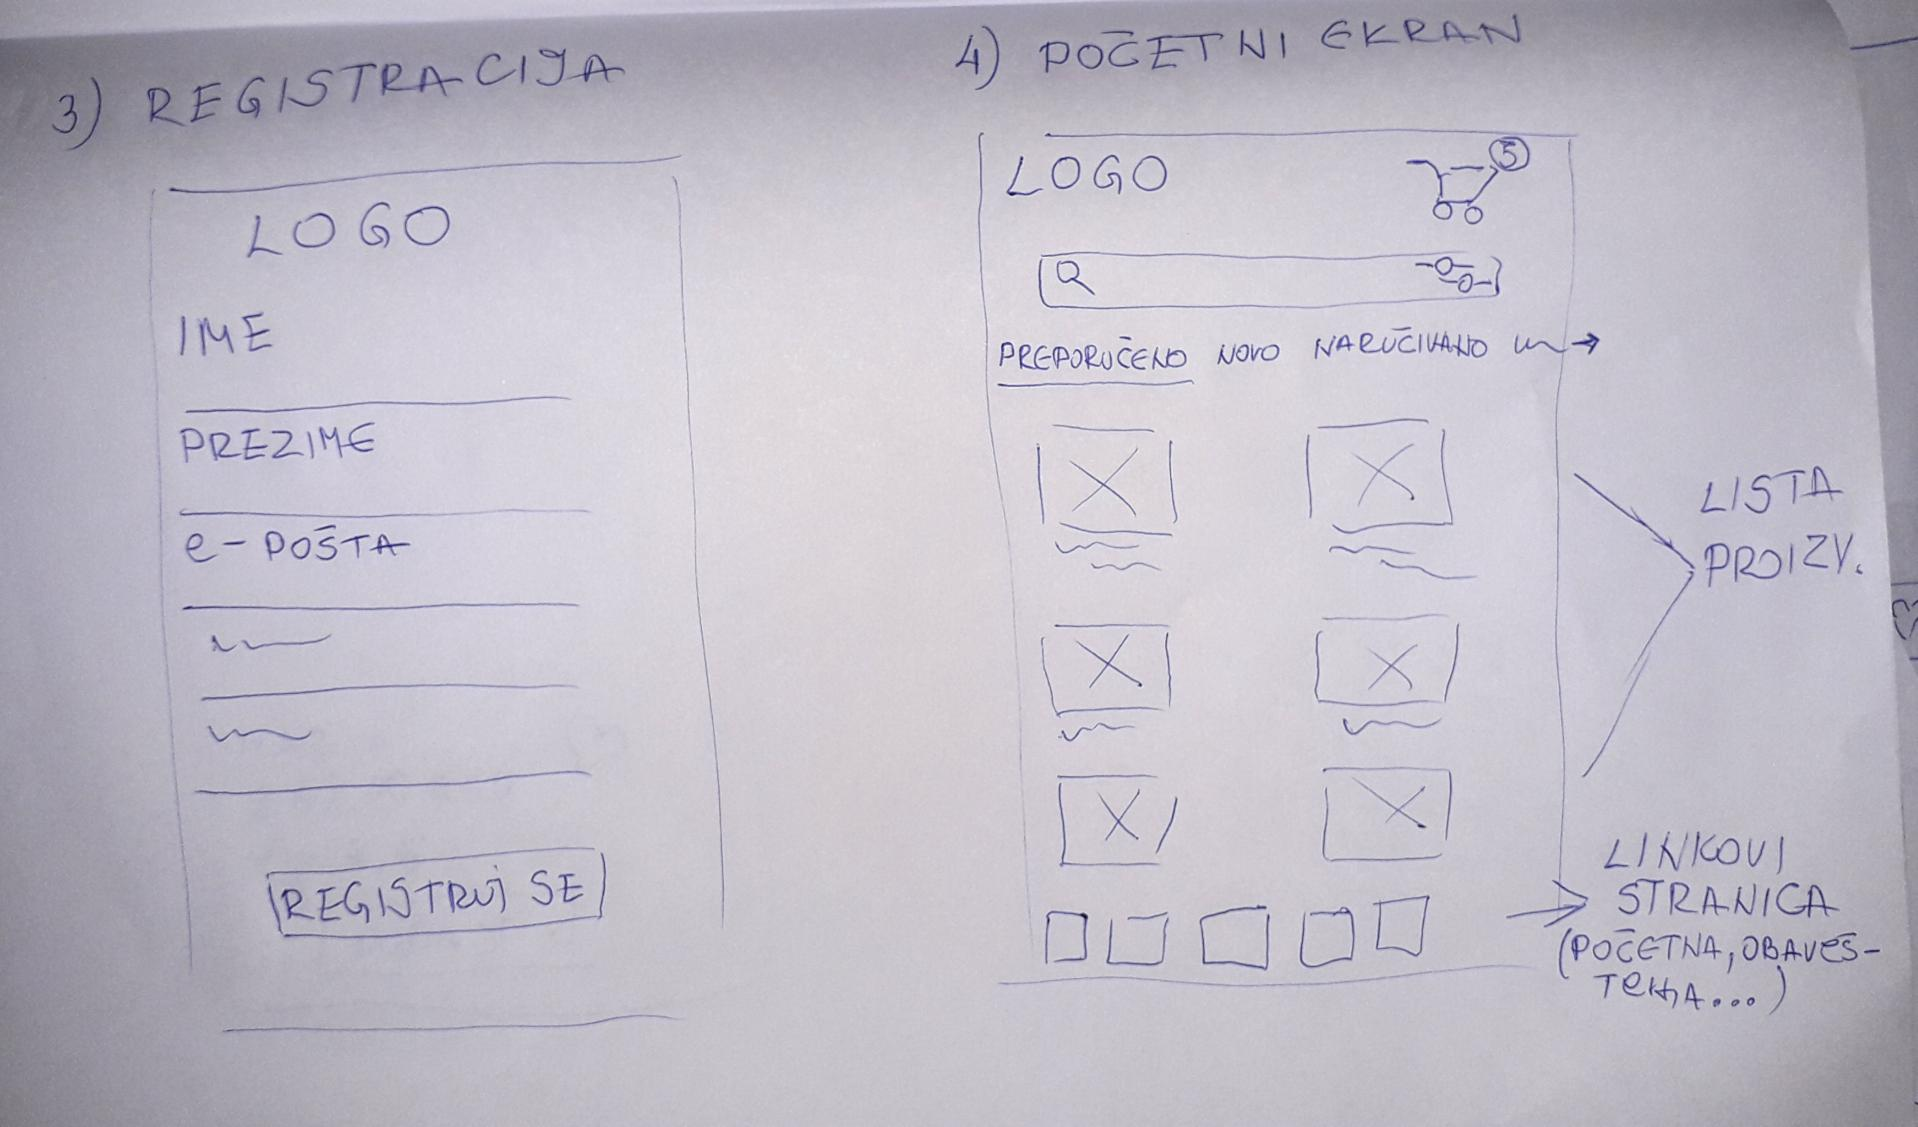 3) REGISTRACIJA
LOGO
IME
PREZIME
e-POŠTA
REGISTRUJ SE
4) POČETNI EKRAN
LOGO
5
PREPORUČENO NOVO NARUČIVANO →
LISTA
PROIZV.
LINKOVI
STRANICA
(POČETNA, OBAVEŠ-
TEЊA...)